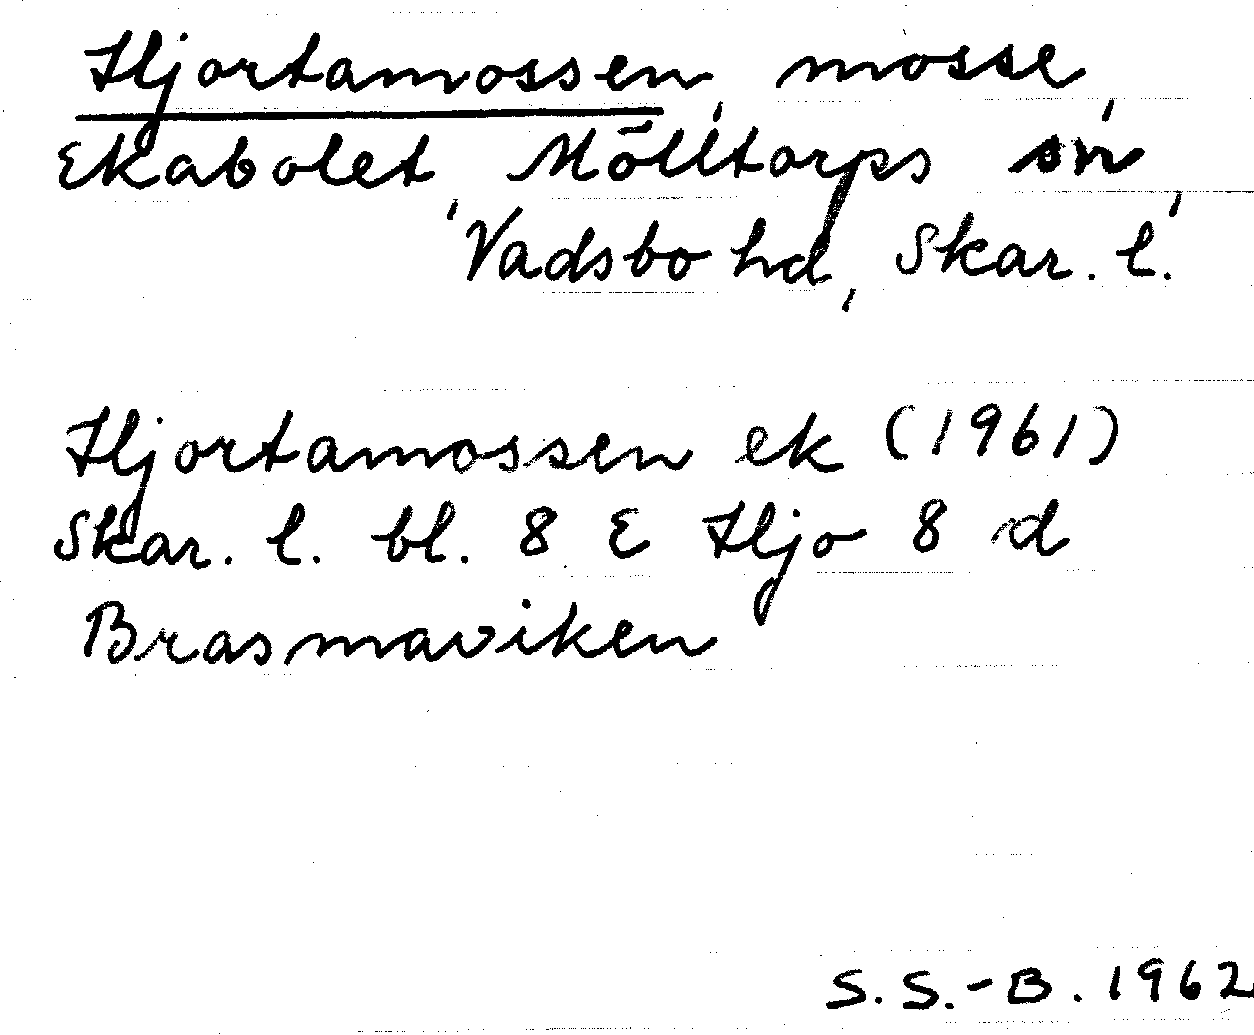 Hjortamossen, mosse,
Ekabolet, Mölltorps sn,
Vadsbo hd, Skar. l.
Hjortamossen ek (1961)
Skar. l. bl. 8 E Hjo 8 d
Brasmaviken
S. S.-B. 1962